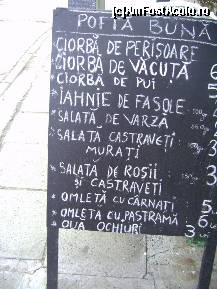 (c)AmFostAcolo.ro
POFTĂ BUNĂ
CIORBĂ DE PERIȘOARE
CIORBĂ DE VĂCUȚĂ 6
CIORBĂ DE PUI
IAHNIE DE FASOLE
SALATĂ DE VARZĂ
SALATĂ CASTRAVEȚI
MURAȚI 3
SALATĂ DE ROȘII
ȘI CASTRAVEȚI 3
OMLETĂ CU CÂRNAȚI 5
OMLETĂ CU PASTRAMĂ 6
OUĂ OCHIURI 3